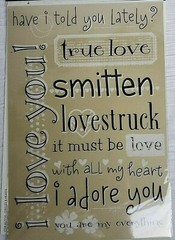 have i told you lately?
i love you!
true love
smitten
lovestruck
it must be love
with all my heart
i adore you
you are my everything